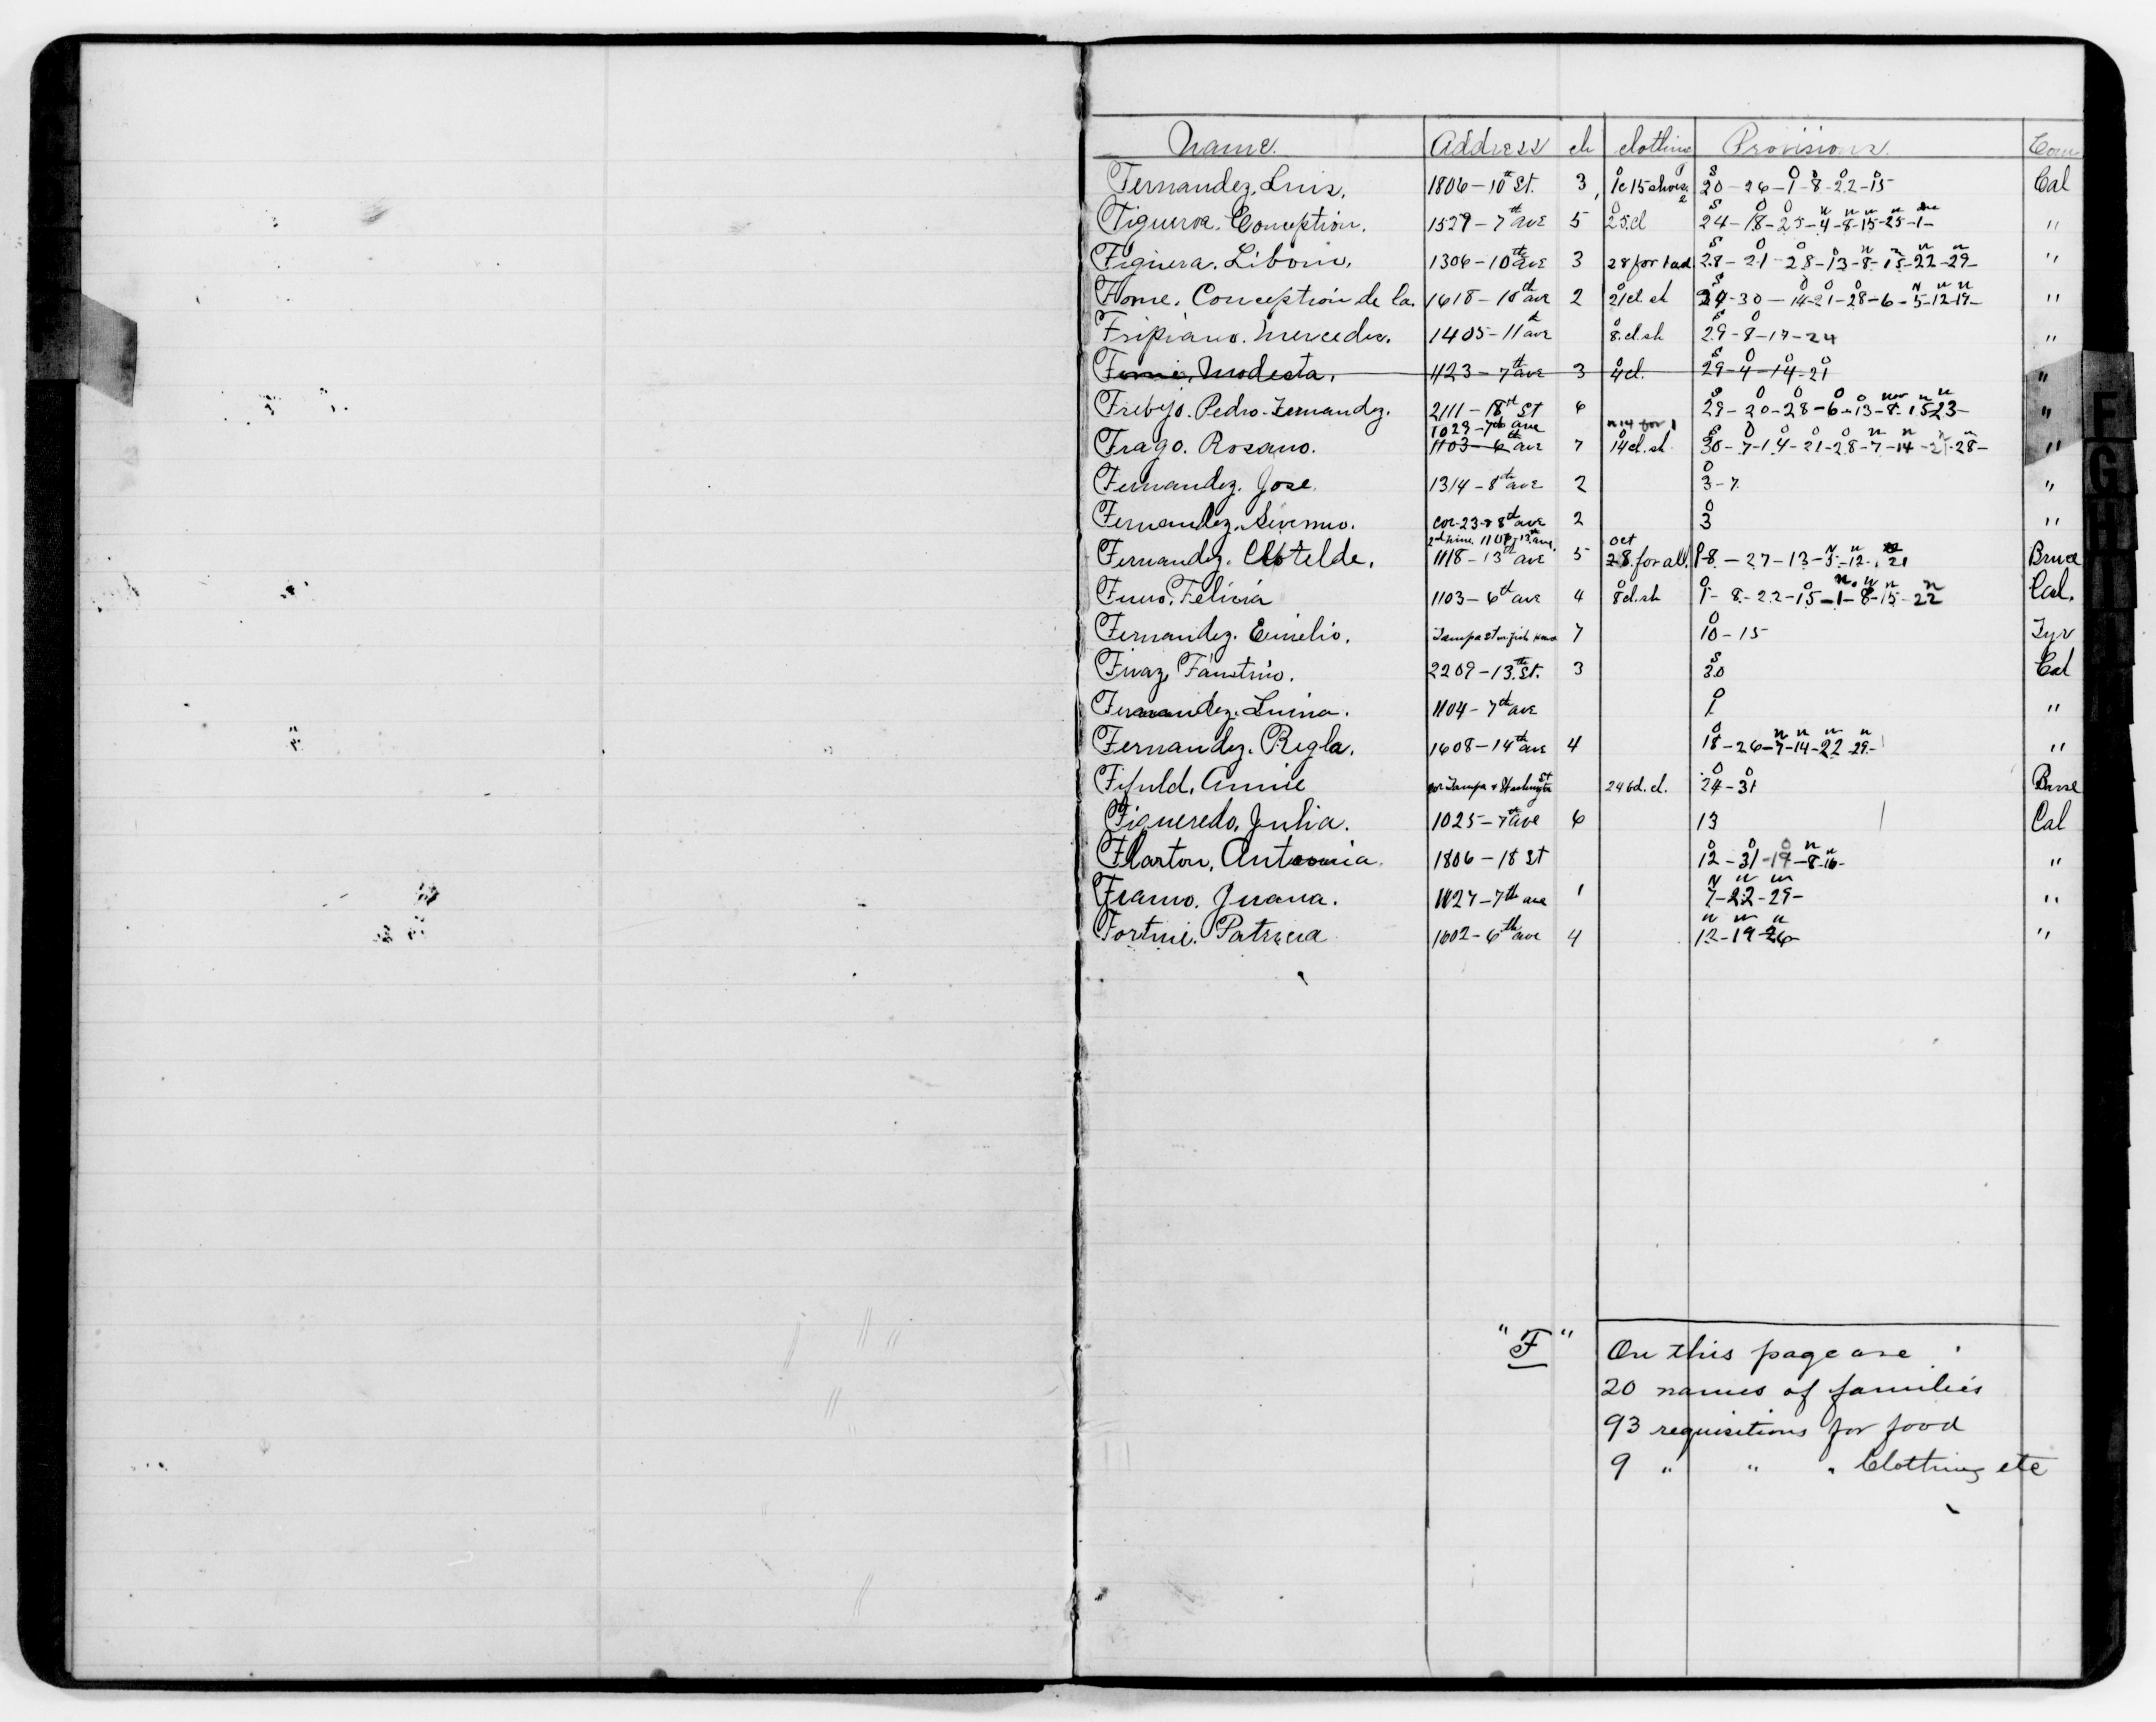 Name. Address ch clothing Provisions. Com
Fernandez, Luis. 1806-10th St. 3, 1c 15 shoes. 20-26-1-8-22-15 Cal
Figueroa. Conception. 1529-7th ave 5 25.cl 24-18-25-4-8-15-25-1- "
Figuera. Liborio. 1306-10th ave 3 28 for 1 ad 28-21-28-13-8-15-22-29- "
Fome. Conception de la. 1618-10th ave 2 21cl. sh 24-30-14-21-28-6-5-12-19- "
Fripiano. Mercedes. 1405-11th ave 8.cl.sh 29-8-17-24 "
Modesta. 1123-7th ave 3 4cl. 29-4-14-21 "
Frebejo. Pedro-Fernandez. 2111-18th St 6 29-20-28-6-13-8-15-23- "
1029-7th ave n14 for 1
Frago. Rosano. 1103-6th ave 7 14cl.sh 30-7-14-21-28-7-14-21-28- "
Fernandez. Jose. 1314-8th ave 2 3-7. "
Fernandez. cor-23-&8th ave 2 3 "
13th ave. oct
Fernandez. Clotelde. 1118-13th ave 5 28.for all. 1-8.-27-13-5-12-21 Bruce
Felicia 1103-6th ave 4 8cl.sh 1-8-22-15-1-8-15-22 Cal.
Fernandez. Emelio. Tampa st 7 10-15 Tyr
Faustino. 2209-13th St. 3 30 Cal
Fernandez. Luina. 1104-7th ave 1. "
Fernandez. Regla. 1608-14th ave 4 18-26-7-14-22-29- "
Fifuld, Annie cor Tampa & Washington St 24-31
Figueredo, Julia. 1025-7th ave 6 13 Cal
Flarton, Antonia. 1806-18 St 12-31-19-8-16- "
Framo. Juana. 1127-7th ave 1 7-22-29- "
Fortuni. Patricia 1602-6th ave 4 12-19-26- "
"F" On this page are
20 names of families
93 requisitions for food
9 " " " Clothing etc
F
G
H
I